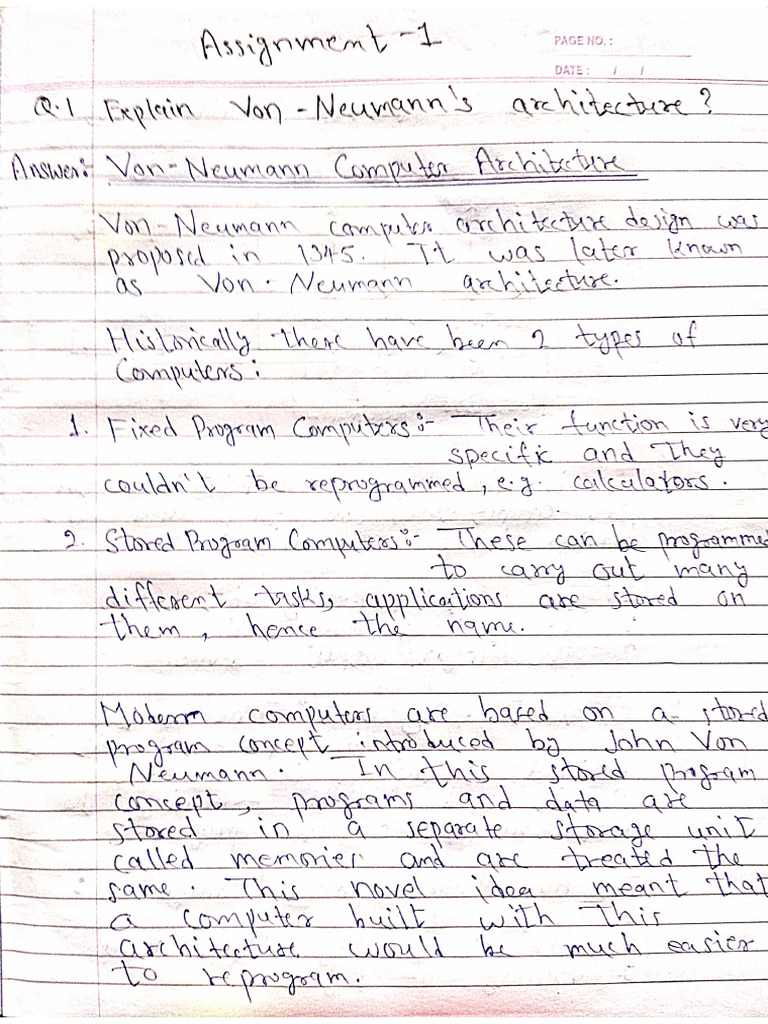 Assignment-1
PAGE NO.:
DATE: / /
Q.1 Explain Von-Neumann's architecture?
Answer:- Von-Neumann Computer Architecture
Von-Neumann computer architecture design was
proposed in 1945. It was later known
as Von-Neumann architecture.
Historically there have been 2 types of
Computers:
1. Fixed Program Computers:- Their function is very
specific and they
couldn't be reprogrammed, e.g. calculators.
2. Stored Program Computers:- These can be programmed
to carry out many
different tasks, applications are stored on
them, hence the name.
Modern computers are based on a stored
program concept introduced by John Von
Neumann. In this stored program
concept, programs and data are
stored in a separate storage unit
called memories and are treated the
same. This novel idea meant that
a computer built with this
architecture would be much easier
to reprogram.